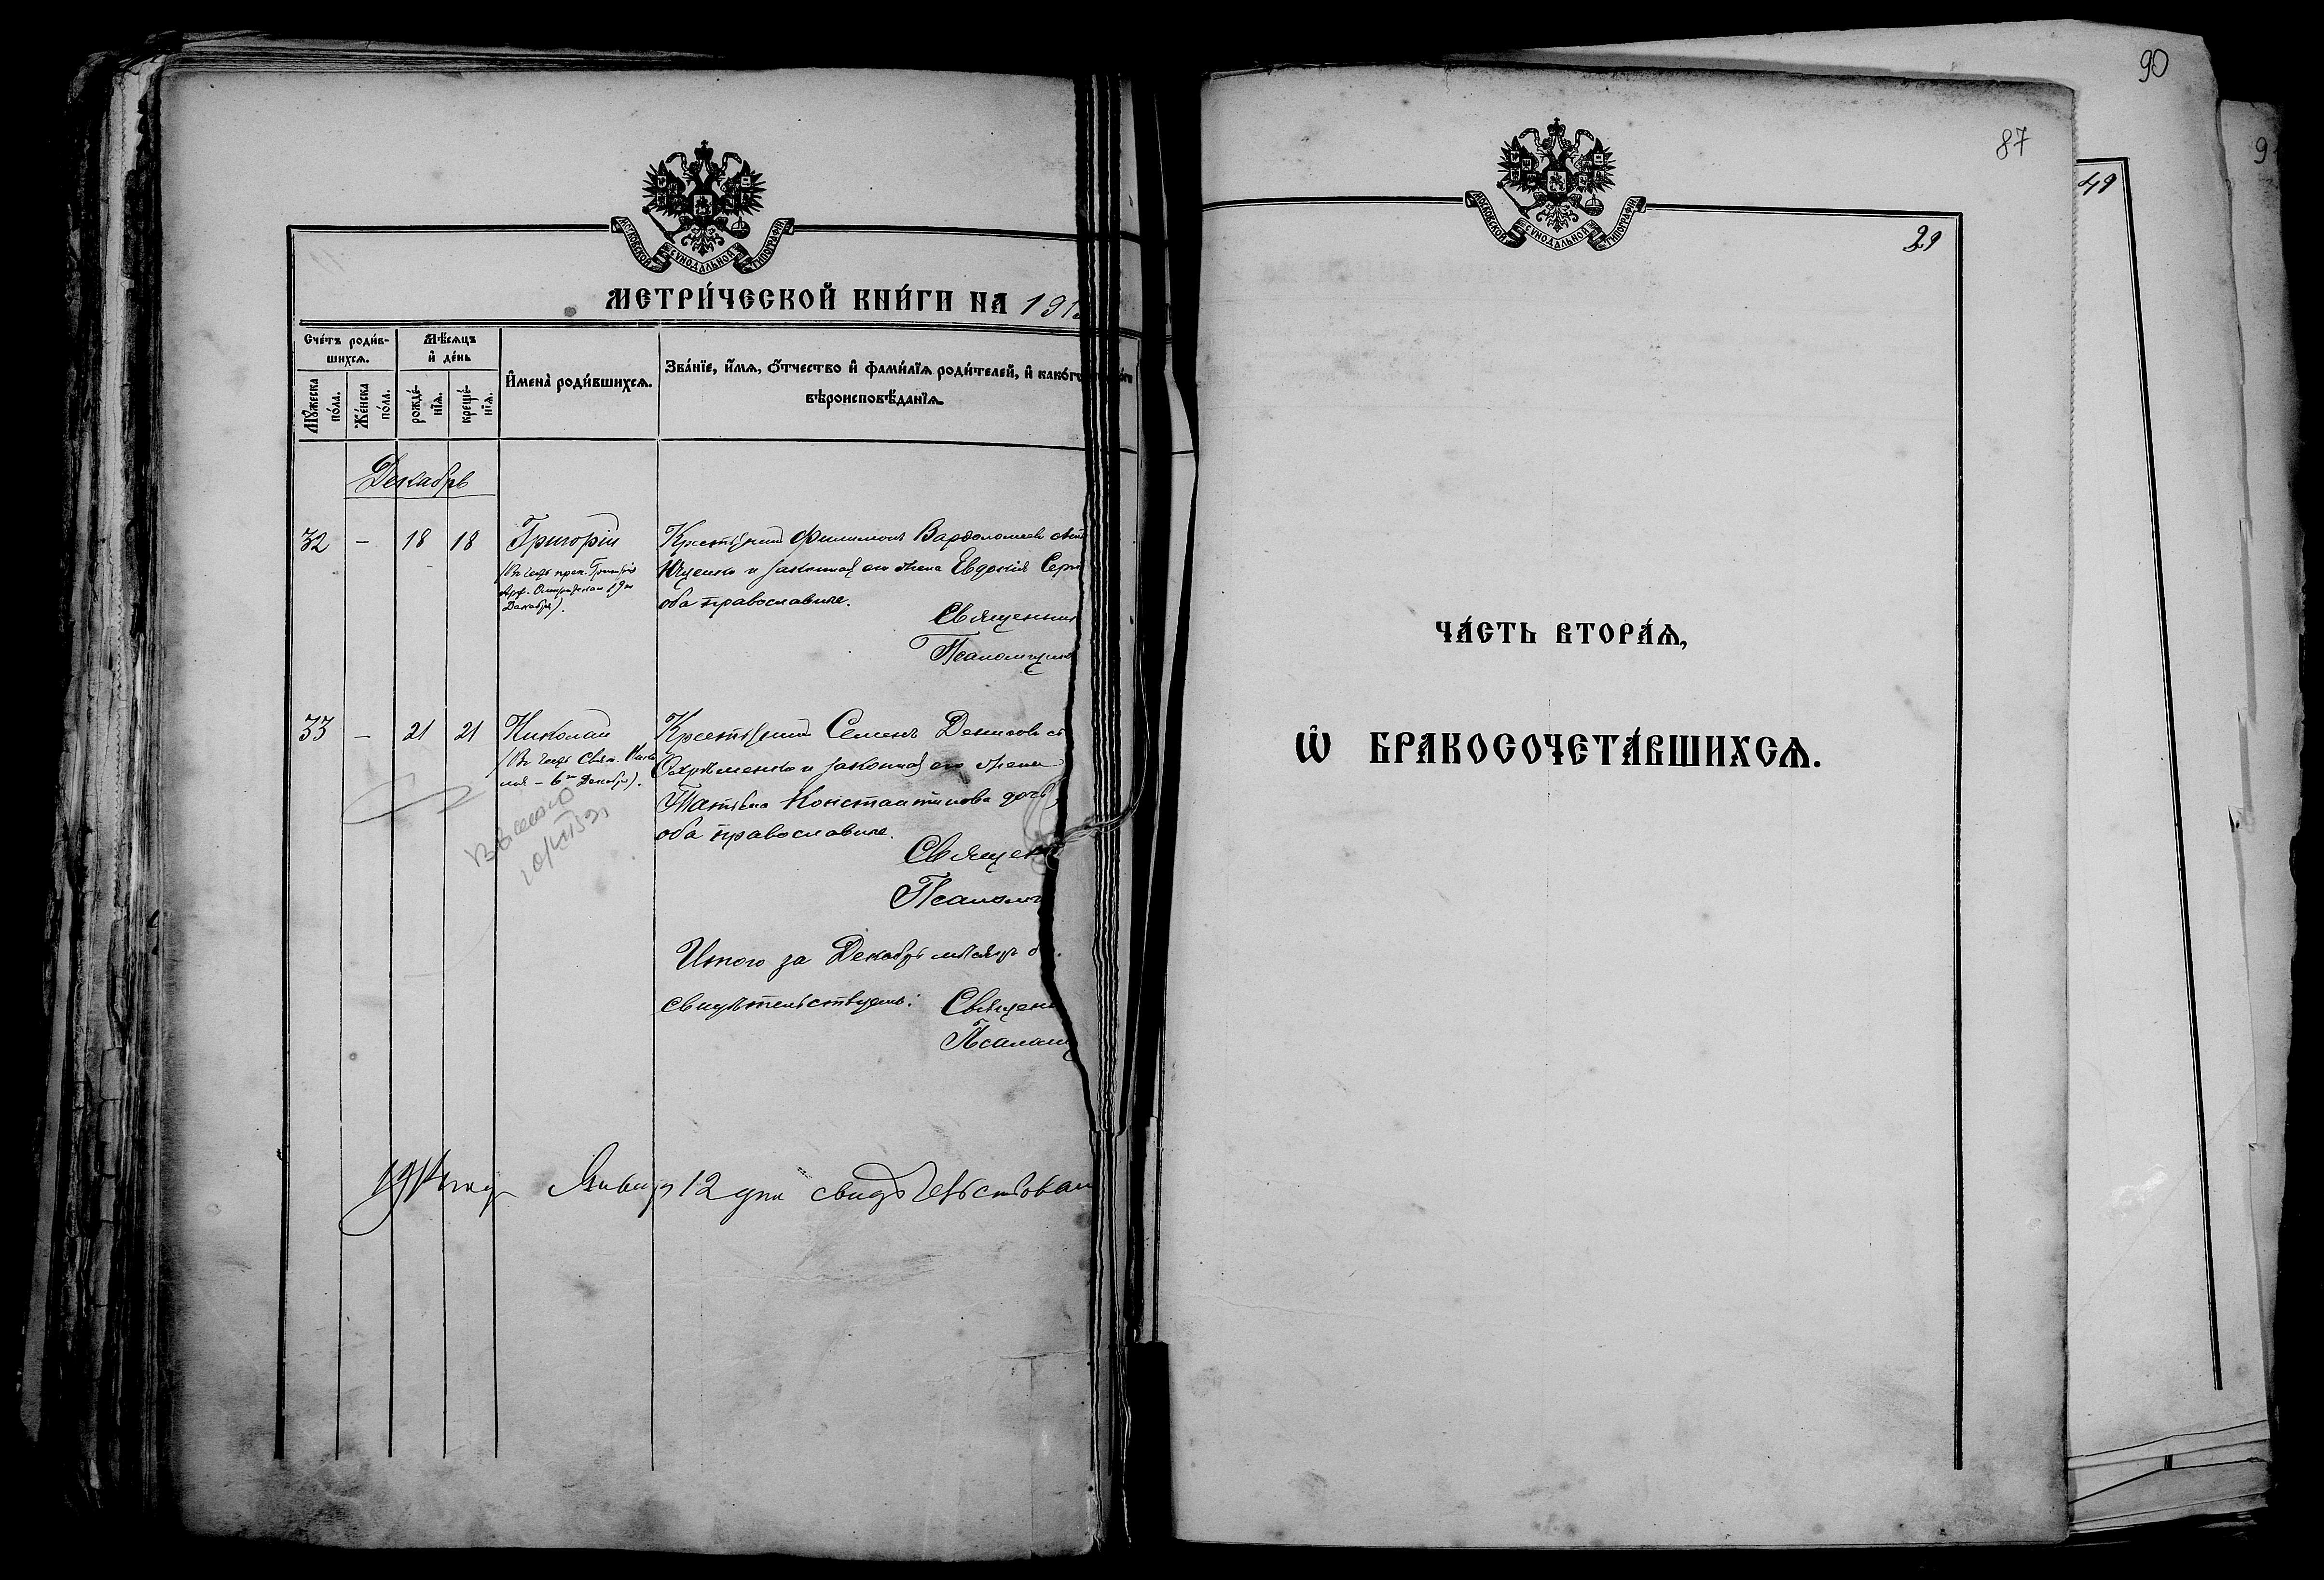 МОСКОВСКОЙ СѴНОДАЛЬНОЙ ТИПОГРАФІИ
МЕТРИ́ЧЕСКОЙ КНИ́ГИ НА 191
Сче́тъ роди́в-
шихсѧ.
Мѣ́сѧцъ
и҆ де́нь
Мꙋ́жеска
по́ла.
Же́нска
по́ла.
рожде́-
нїѧ.
креще́-
нїѧ.
И҆мена̀ роди́вшихсѧ.
Зва́нїе, и҆́мѧ, ѻ҆́тчество и҆ фами́лїѧ роди́телей, и҆ како́гѡ
вѣроисповѣ́данїѧ.
Декабрь
32 – 18 18 Григорій
(Въ честь преп. Григорія
19го
Декабря).
Крестьянинъ Филимонъ Варѳоломеевъ
Ющенко и законная его жена Евдокія
оба православные.
Священник
Псаломщик
33 – 21 21 Николай
(Въ честь Свят. Нико
лая – 6го Декабря).
Крестьянинъ Семенъ Денисовъ
и законная его жена
Татьяна Константинова дочь,
оба православные.
Священ
Псалом
Итого за Декабрь мѣсяцъ
свидѣтельствуемъ: Священ
Псалом
1914 года Января 12 дня свидѣтельствовал
90
87
МОСКОВСКОЙ СѴНОДАЛЬНОЙ ТИПОГРАФІИ
29
49
9
ЧА́СТЬ ВТОРА́Ѧ,
Ѽ БРАКОСОЧЕТА́ВШИХСѦ.